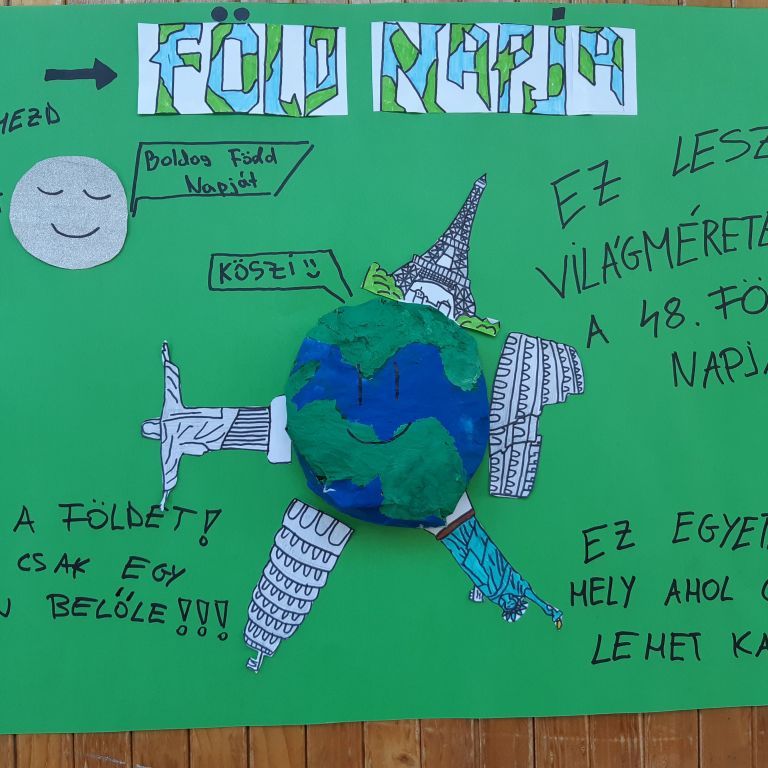 FÖLD NAPJA
Boldog Föld
Napját
KÖSZI
EZ LESZ
VILÁGMÉRETE
A 48. FÖ
NAPJA
A FÖLDET!
CSAK EGY
BELŐLE!!!
EZ EGYET
HELY AHOL
LEHET KA